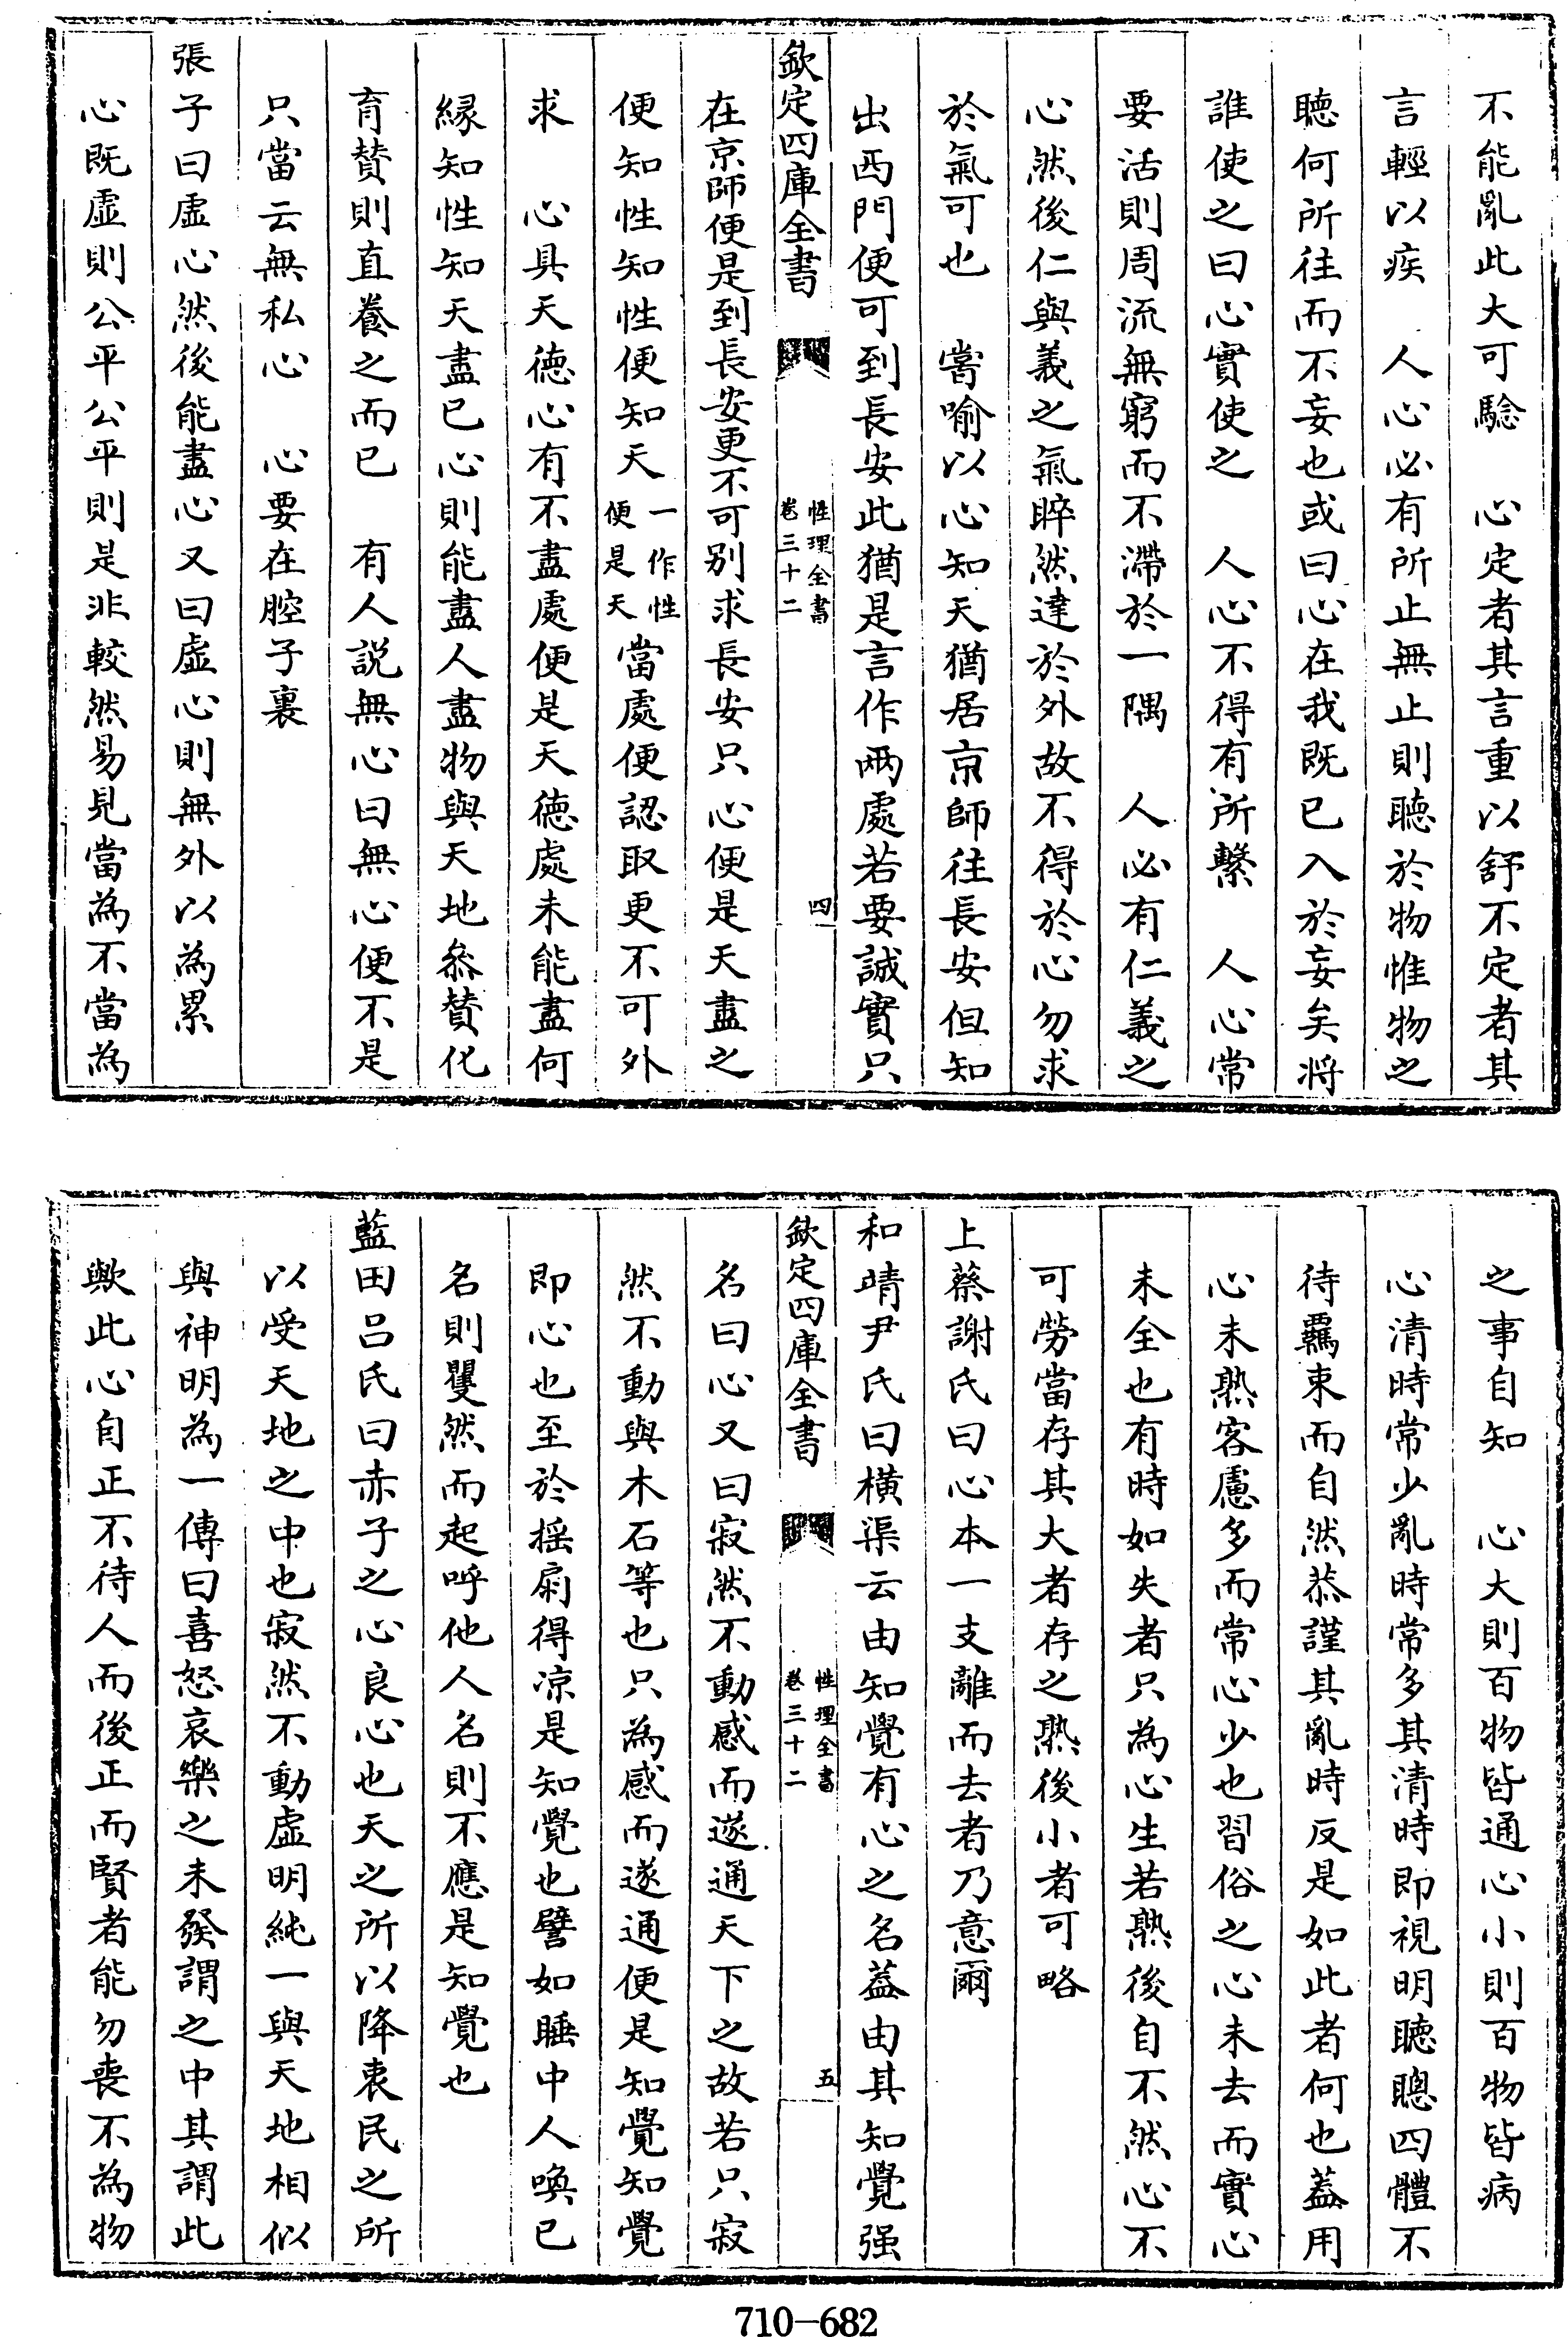 不能亂此大可驗　心定者其言重以舒不定者其
言輕以疾　人心必有所止無止則聽於物惟物之
聽何所往而不妄也或曰心在我既已入於妄矣将
誰使之曰心實使之　人心不得有所繫　人心常
要活則周流無窮而不滯於一隅　人必有仁義之
心然後仁與義之氣睟然達於外故不得於心勿求
於氣可也　嘗喻以心知天猶居京師往長安但知
出西門便可到長安此猶是言作兩處若要誠實只
欽定四庫全書　性理全書卷三十二　四
在京師便是到長安更不可别求長安只心便是天盡之
便知性知性便知天一作性便是天當處便認取更不可外
求　心具天德心有不盡處便是天德處未能盡何
緣知性知天盡己心則能盡人盡物與天地叅贊化
育贊則直養之而已　有人説無心曰無心便不是
只當云無私心　心要在腔子裏
張子曰虚心然後能盡心又曰虚心則無外以為累
心既虚則公平公平則是非較然易見當為不當為
之事自知　心大則百物皆通心小則百物皆病
心清時常少亂時常多其清時即視明聽聰四體不
待羈束而自然恭謹其亂時反是如此者何也蓋用
心未熟客慮多而常心少也習俗之心未去而實心
未全也有時如失者只為心生若熟後自不然心不
可勞當存其大者存之熟後小者可略
上蔡謝氏曰心本一支離而去者乃意爾
和靖尹氏曰横渠云由知覺有心之名蓋由其知覺强
欽定四庫全書　性理全書卷三十二　五
名曰心又曰寂然不動感而遂通天下之故若只寂
然不動與木石等也只為感而遂通便是知覺知覺
即心也至於揺扇得凉是知覺也譬如睡中人喚已
名則矍然而起呼他人名則不應是知覺也
藍田吕氏曰赤子之心良心也天之所以降衷民之所
以受天地之中也寂然不動虚明純一與天地相似
與神明為一傳曰喜怒哀樂之未發謂之中其謂此
歟此心自正不待人而後正而賢者能勿喪不為物
710-682